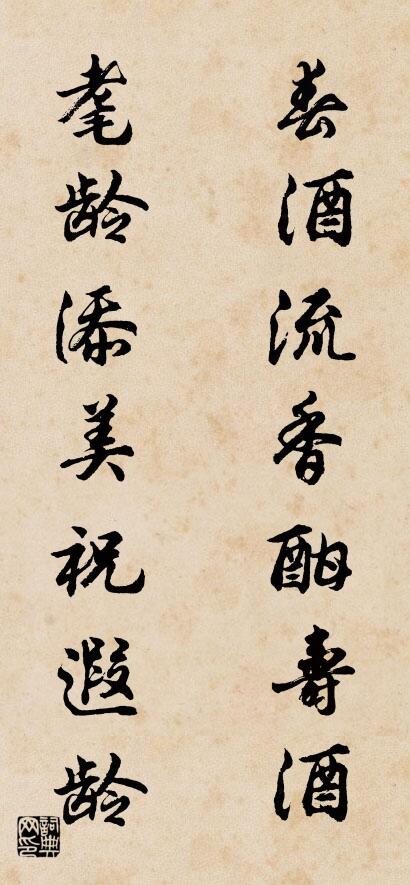 春酒流香酣寿酒
耄龄添美祝遐龄
詞典网印